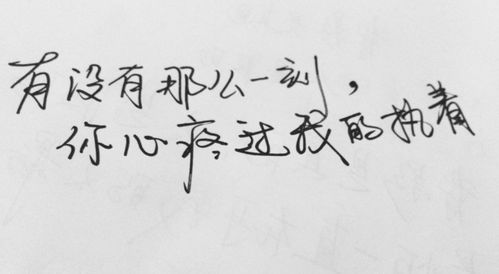 有没有那么一刻，
你心疼过我的执着